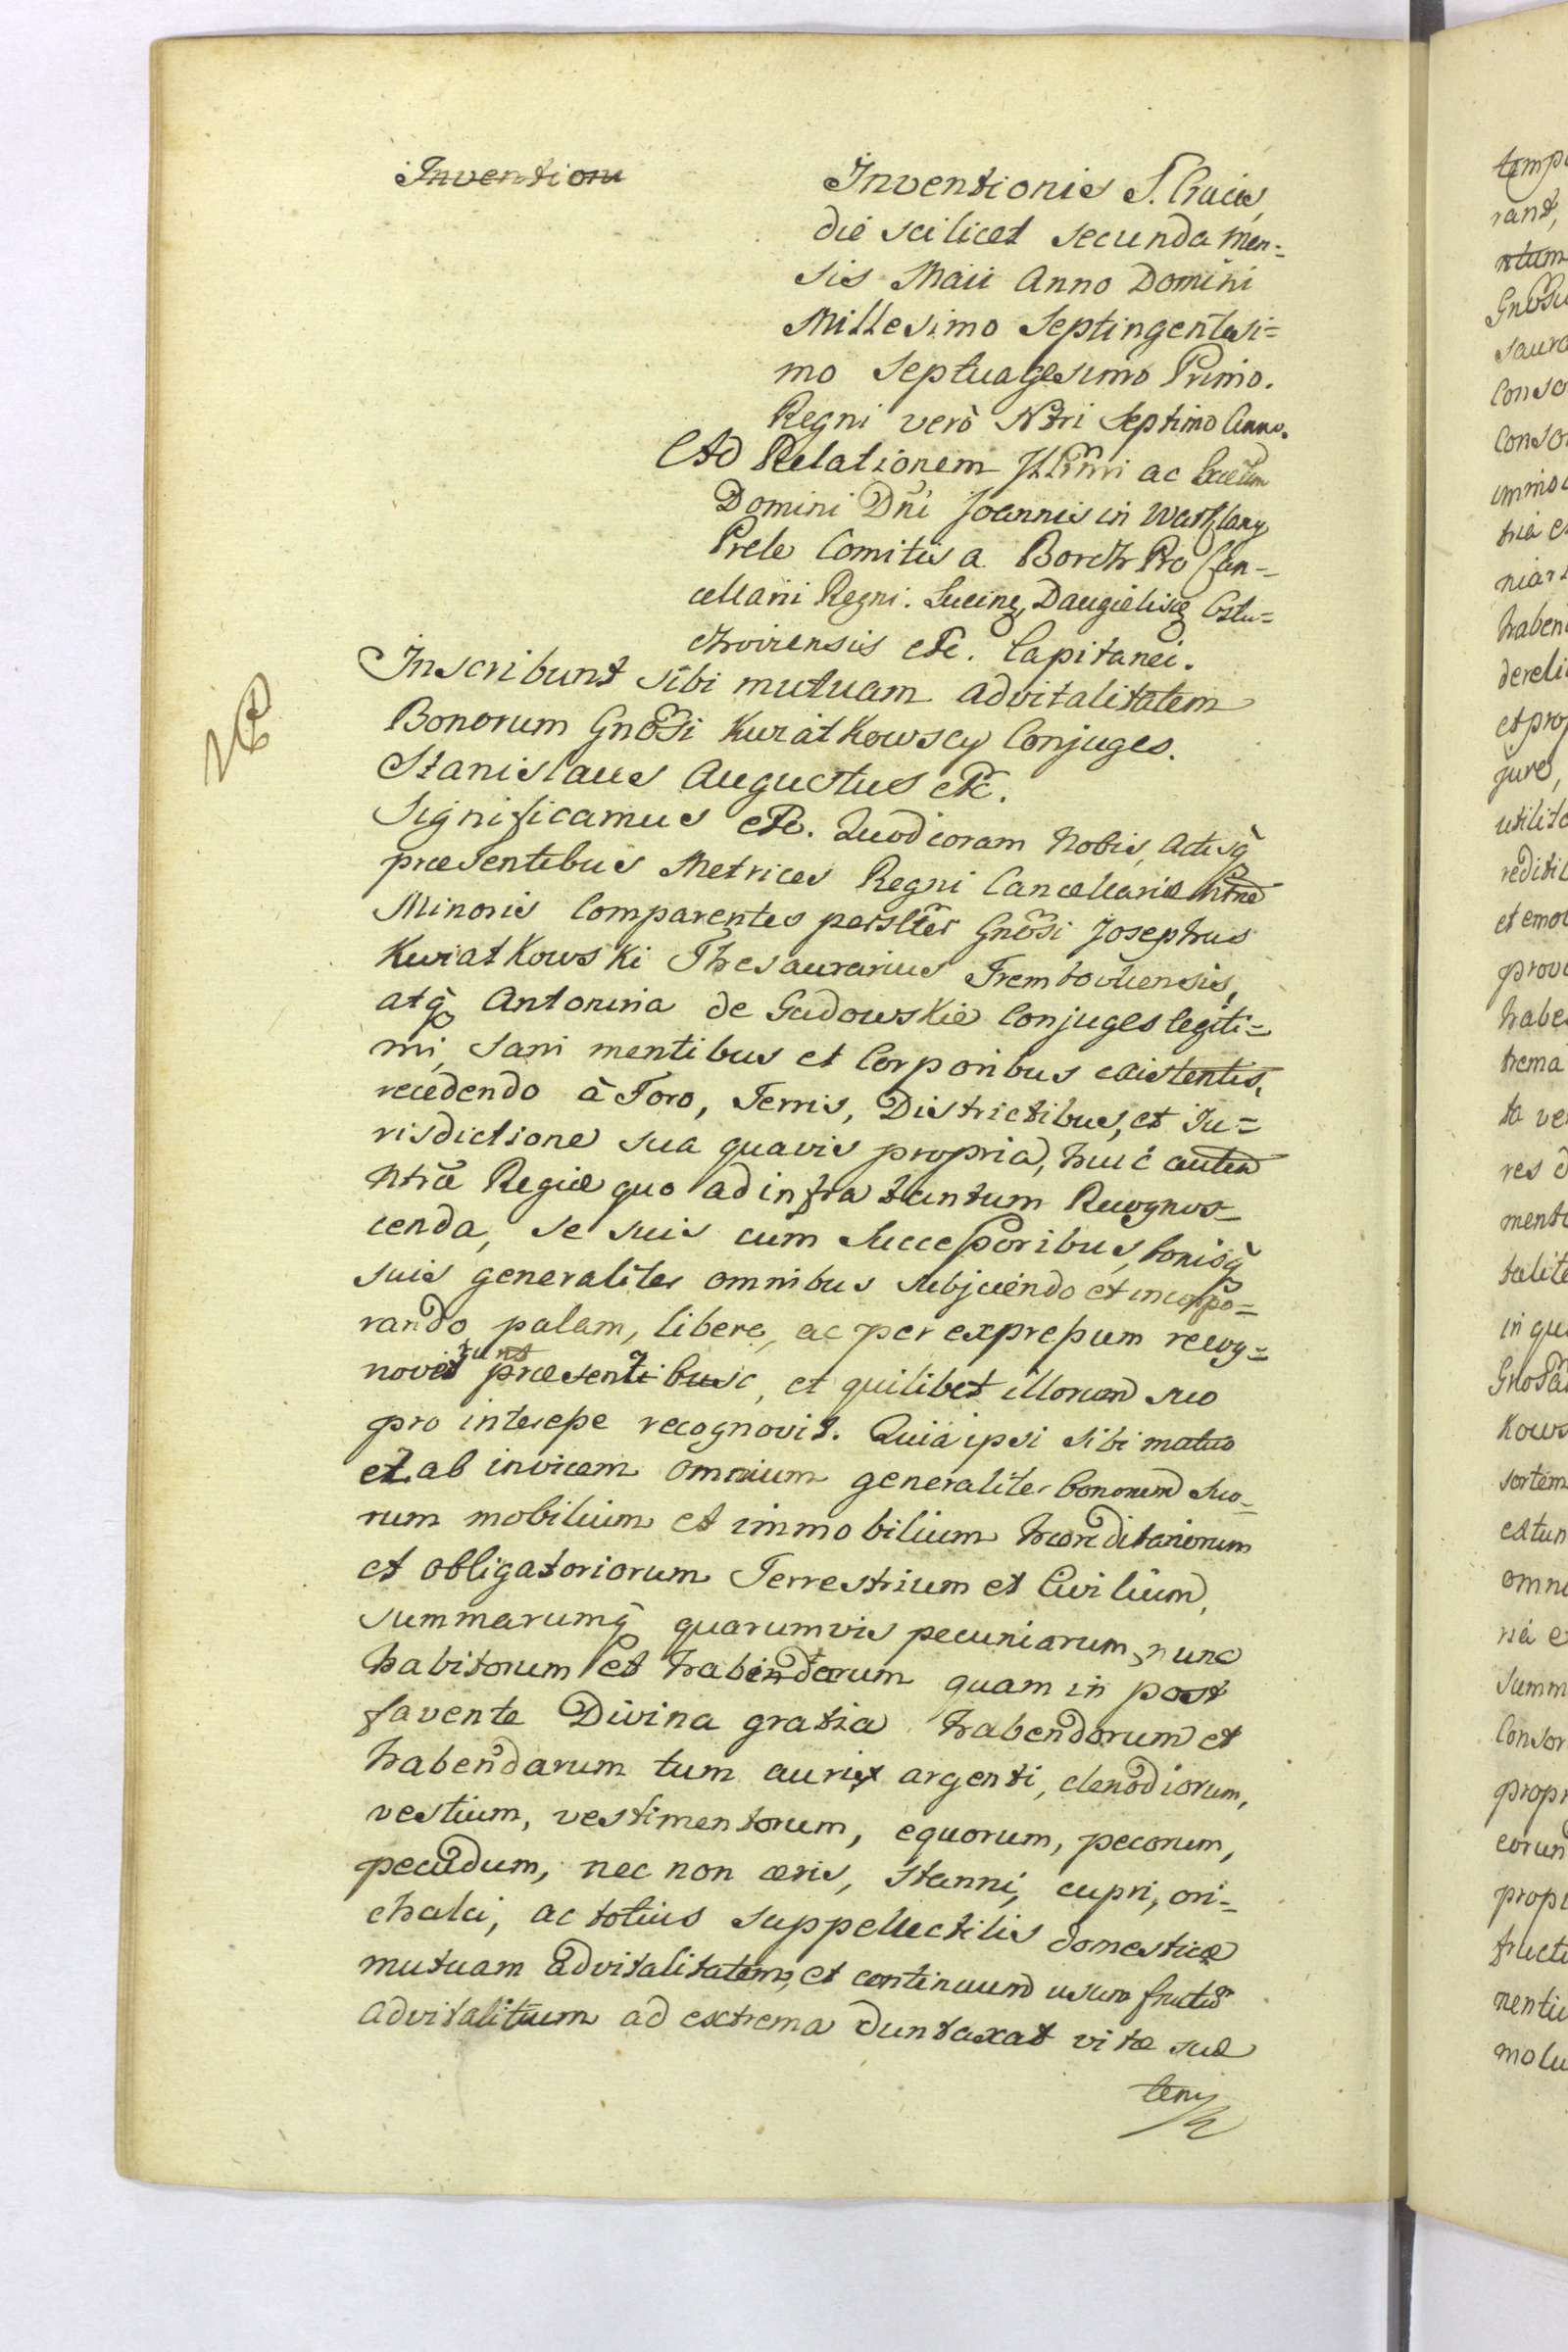 Invention
Inventionis S. Crucis,
die scilicet secunda Men=
sis Maii Anno Domini
Millesimo Septingentesi=
mo Septuagesimo Primo.
Regni verò Ntri Septimo Anno.
Ad Relationem Illmi ac
Domini Dni Joannis in Warklany
Prele Comitis a Borch Pro Can=
cellarii Regni. Lucing, Daugielisg Ostu=
choviensis etc. Capitanei.
Inscribunt sibi mutuam advitalitatem
Bonorum Gnosi Kwiatkowscy Conjuges.
Stanislaus Augustus etc.
Significamus etc. Quod coram Nobis, Actisq
præsentibus Metrices Regni Cancellariæ Ntræ
Minoris Comparentes persltêr Gnosi Josephus
Kwiatkowski Thesaurarius Trembovliensis,
atq Antonina de Gadowskie Conjuges legiti=
mi, sani mentibus et Corporibus existentes,
recedendo à Foro, Terris, Districtibus, et Ju=
risdictione sua quavis propria, huic autem
Ntræ Regiæ quo ad infra tantum Recognos=
cenda, se suis cum Successoribus, bonisq
suis generaliter omnibus subjiciendo et incorpo=
rando, palam, libere, ac per expressum recog=
noverunt præsentibusc, et quilibet illorum suo
pro interesse recognovit. Quia ipsi sibi mutuo
et ab invicem omnium generaliter bonorum suo=
rum mobilium et immobilium hæreditariorum
et obligatoriorum Terrestrium et Civilium,
summarumq quarumvis pecuniarum, nunc
habitorum et habitarum quam in post
favente Divina gratia habendorum et
habendarum tum auri et argenti, clenodiorum,
vestium, vestimentorum, equorum, pecorum,
pecudum, nec non æris, stanni, cupri, ori=
chalci, ac totius suppellectilis domesticæ
mutuam advitalitatem, et continuum usum fructum
advitalitium ad extrema duntaxat vitæ suæ
tem